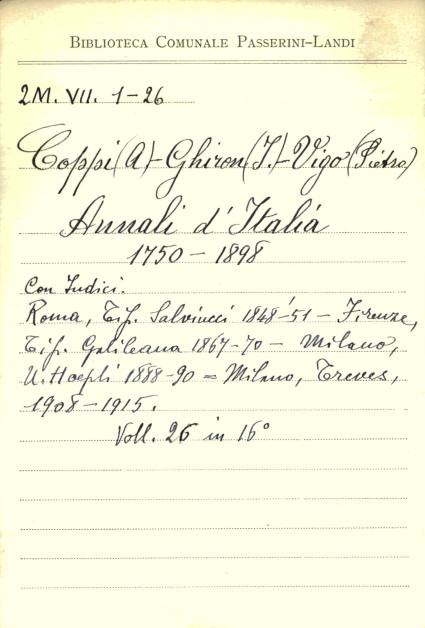 BIBLIOTECA COMUNALE PASSERINI-LANDI
2M. VII. 1-26
Coppi (A)-Ghiron (I.)-Vigo (Pietro)
Annali d'Italia
1750-1898
Con Indici.
Roma, Tip. Salviucci 1848-51 - Firenze,
Tip. Galileana 1867-70 - Milano,
U. Hoepli 1888-90 = Milano, Treves,
1908-1915.
Voll. 26 in 16°